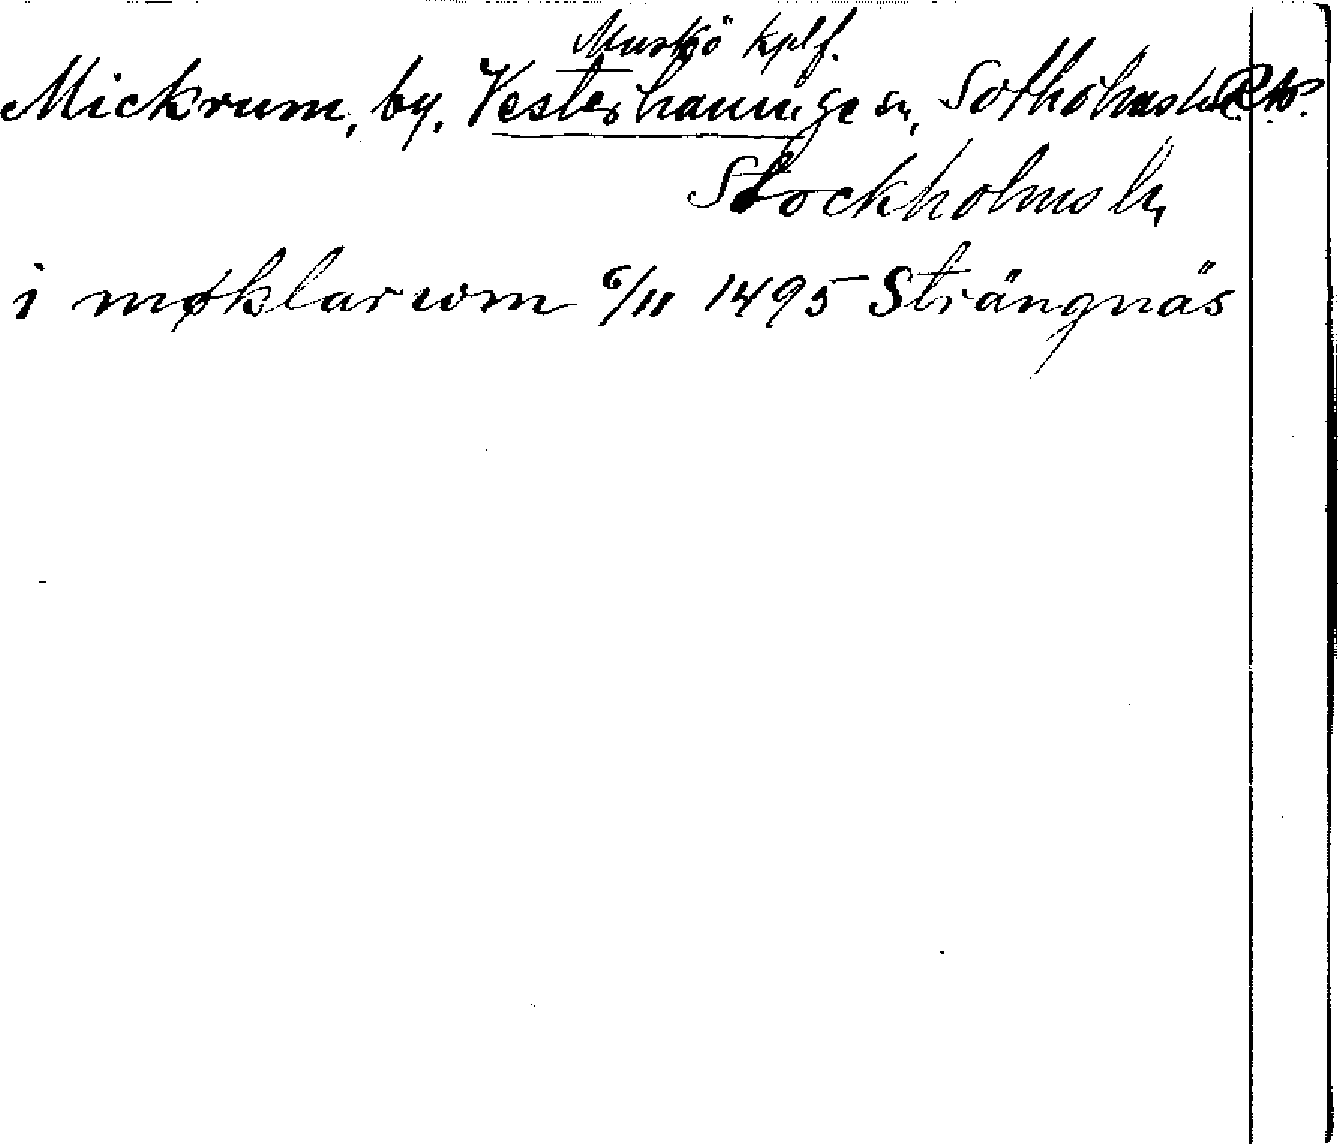 Muskö kplf.
Mickrum, by, Vesterhaninge sn, Sotholms hd
Stockholms ln
i møklarwm 6/11 1495 Strängnäs